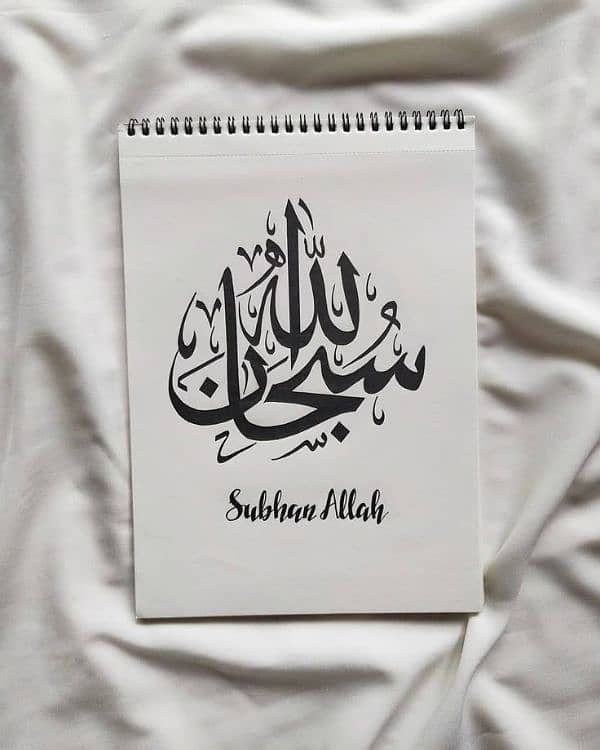 سُبحان الله
Subhan Allah